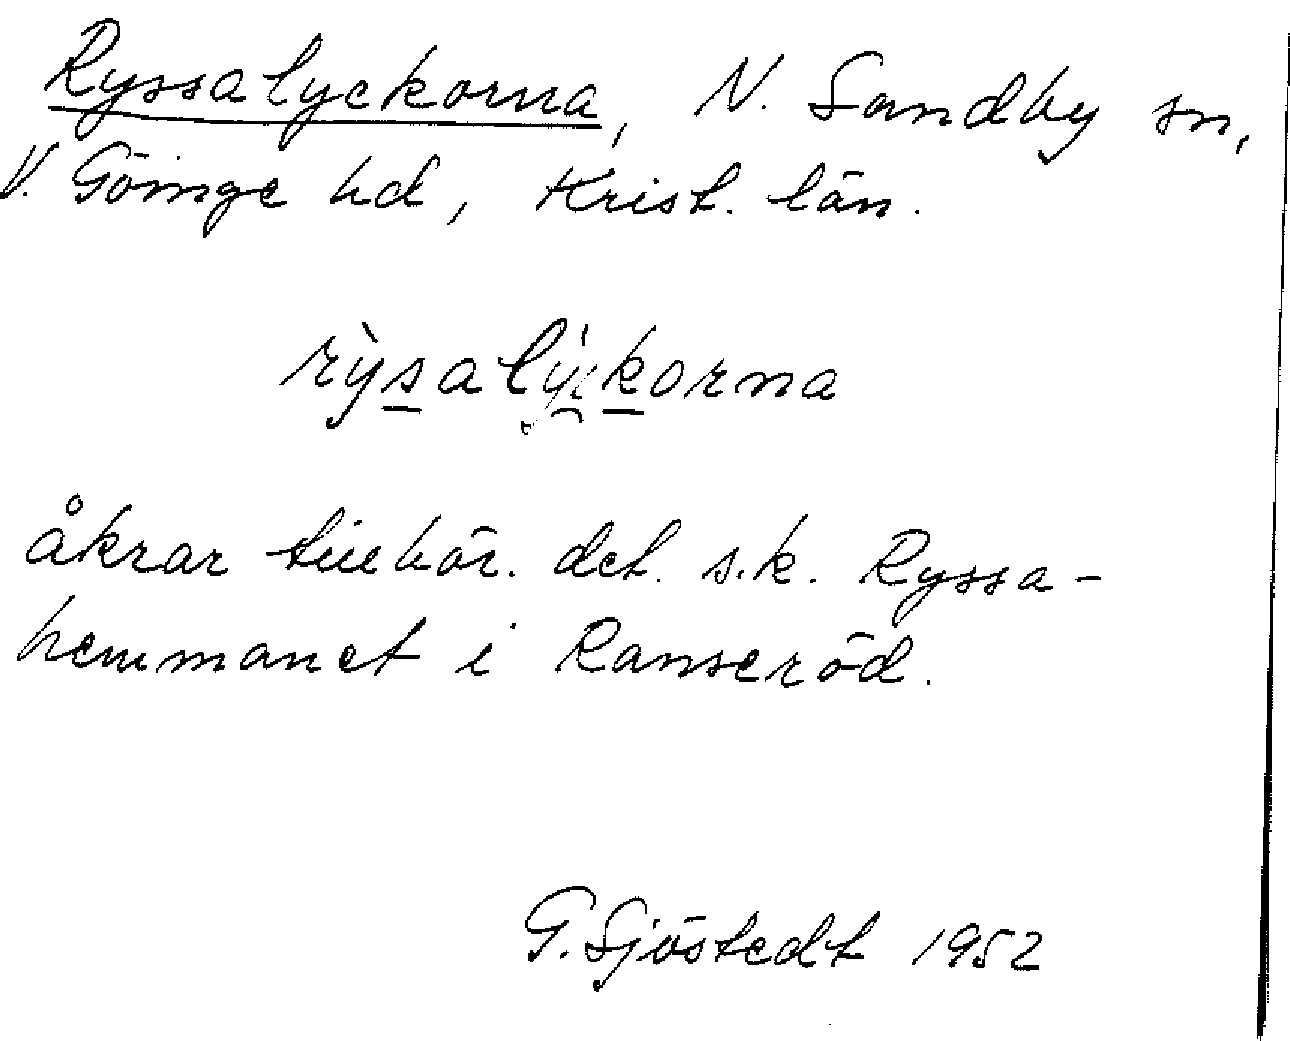 Ryssalyckorna, N. Sandby sn,
V. Göinge hd, Krist. län.
rỳsalýckorna
åkrar tillhör. det s.k. Ryssa-
hemmanet i Ranseröd.
G. Sjöstedt 1952